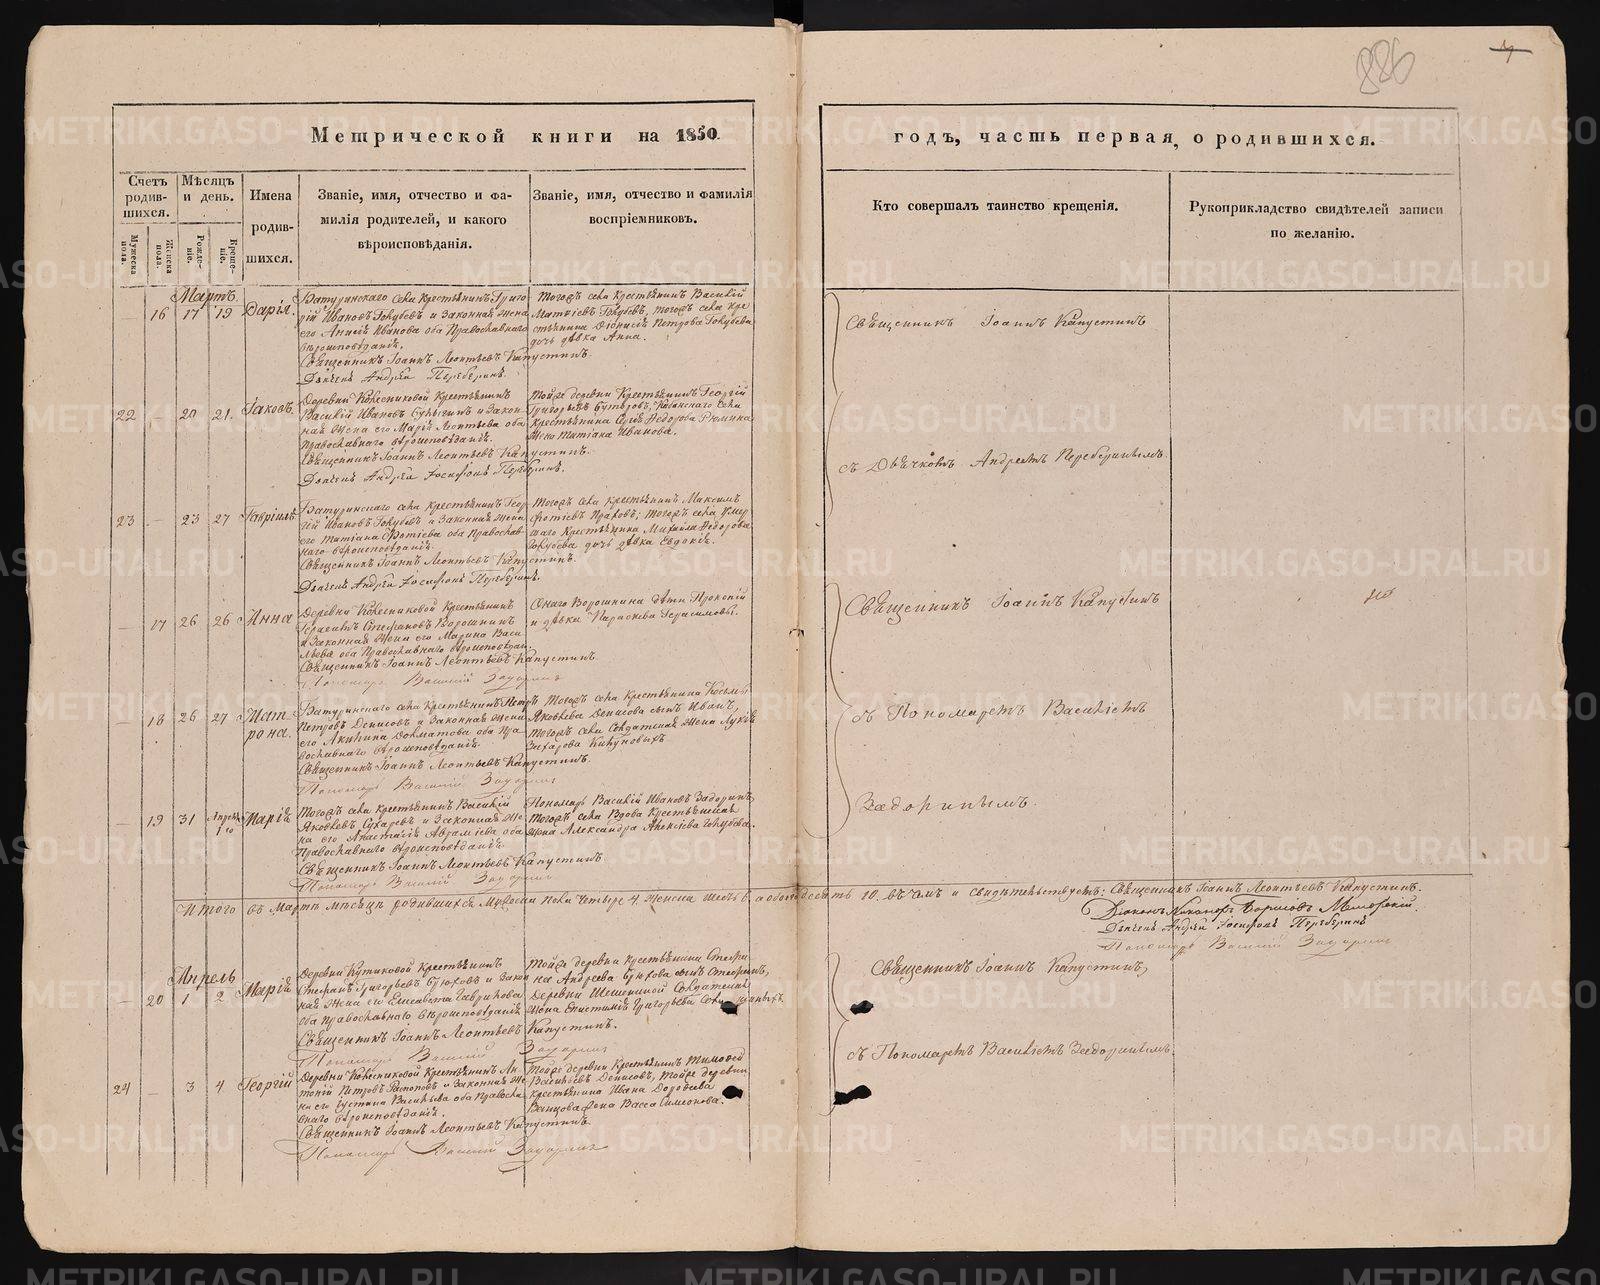 886
Метрической книги на 1850.
годъ, часть первая, о родившихся.
Счетъ родив-шихся.
Мѣсяцъ и день.
Имена родив-шихся.
Званіе, имя, отчество и фа-
милія родителей, и какого
вѣроисповѣданія.
Званіе, имя, отчество и фамилія
воспріемниковъ.
Кто совершалъ таинство крещенія.
Рукоприкладство свидѣтелей записи
по желанію.
Мужеска пола.
Женска пола.
Рожде-ніе.
Креще-ніе.
Мартъ
16 17 19 Дарія.
Батуринскаго села крестьянинъ Григо-
рій Ивановъ Голубевъ и законная жена
его Анисія Иванова оба Православнаго
вѣроисповѣданія.
Священникъ Іоаннъ Леонтьевъ Капустинъ.
Дьячекъ Андрей Переберинъ.
Тогожъ села крестьянинъ Василій
Матвіевъ Голубевъ, тогожъ села кре
стьянина Діонисія Петрова Голубева
дочь дѣвка Анна.
Священникъ Іоаннъ Капустинъ
22 — 20 21. Іаковъ.
Деревни Колесниковой крестьянинъ
Василій Ивановъ и закон-
ная жена его Марія Леонтьева оба
Православнаго вѣроисповѣданія.
Священникъ Іоаннъ Леонтьевъ Капустинъ.
Дьячекъ Андрей Іосифовъ Переберинъ.
Тойже деревни крестьянинъ Георгій
Григорьевъ
крестьянина Сергія Ѳедорова Рюмина
жена Татіана Иванова.
съ Дьячкомъ Андреемъ Переберинымъ.
23 — 23 27 Гавріилъ
Батуринскаго села крестьянинъ Геор-
гій Ивановъ Голубевъ и законная жена
его Татіана Фотіева оба Православ-
наго вѣроисповѣданія.
Священникъ Іоаннъ Леонтьевъ Капустинъ.
Дьячекъ Андрей Іосифовъ Переберинъ.
Тогожъ села крестьянинъ Максимъ
Фотіевъ тогожъ села умер-
шаго крестьянина Михаила Ѳедорова
Голубева дочь дѣвка Евдокія.
— 17 26 26 Анна
Деревни Колесниковой крестьянинъ
Герасимъ Стефановъ Ворошнинъ
и законная жена его Марина Васи
льева оба Православнаго вѣроисповѣдан.
Священникъ Іоаннъ Леонтьевъ Капустинъ
Пономарь Василій Задоринъ
Онаго Ворошнина дѣти Прокопій
и дѣвка Параскева Герасимовы.
Священникъ Іоаннъ Капустинъ
— 18 26 27 Мат-
рона.
Батуринскаго села крестьянинъ Петръ
Петровъ Денисовъ и законная жена
его Акилина Долматова оба Пра
вославнаго вѣроисповѣданія.
Священникъ Іоаннъ Леонтьевъ Капустинъ.
Пономарь Василій Задоринъ
Тогожъ села крестьянина Косьмы
Яковлева Денисова сынъ Иванъ,
тогожъ села солдатская жена
Захарова
съ Пономаремъ Василіемъ
— 19 31 Апрѣля 1го Марія
Тогожъ села крестьянинъ Василій
Яковлевъ Сухаревъ и законная же
на его Анастасія Аврамієва оба
Православнаго вѣроисповѣданія
Священникъ Іоаннъ Леонтьевъ Капустинъ
Пономарь Василій Задоринъ
Пономарь Василій Ивановъ Задоринъ,
тогожъ села вдова крестьянская
жена Александра Алексіева Голубева.
Задоринымъ.
Итого въ Мартѣ мѣсяцѣ родившихся Мужеска пола четыре 4. Женска шесть 6. а обоего десять 10. въ чемъ и свидѣтельствуемъ: Священникъ Іоаннъ Леонтьевъ Капустинъ.
Дьячекъ Андрей Іосифовъ Переберинъ
Пономарь Василій Задоринъ
Апрѣль
— 20 1 2 Марія
Деревни Кутиковой крестьянинъ
Стефанъ Григорьевъ Брюховъ и закон
ная жена его Елисавета Гаврилова
оба Православнаго вѣроисповѣданія
Священникъ Іоаннъ Леонтьевъ Капустинъ.
Пономарь Василій Задоринъ
Тойже деревни крестьянина Стефа-
на Андреева Брюхова сынъ Стефанъ,
деревни солдатская
жена Епистимія Григорьева
Священникъ Іоаннъ Капустинъ,
24 — 3 4 Георгій
Деревни Колесниковой крестьянинъ Ан
тоній Петровъ и законная же
на его Устинія Васильева оба Правосла
внаго вѣроисповѣданія.
Священникъ Іоаннъ Леонтьевъ Капустинъ.
Пономарь Василій Задоринъ
Тойже деревни крестьянинъ Тимофей
Васильевъ Денисовъ, тойже деревни
крестьянина Ивана Дороѳеева
жена Васса Симеонова.
съ Пономаремъ Василіемъ Задоринымъ.
METRIKI.GASO-URAL.RU